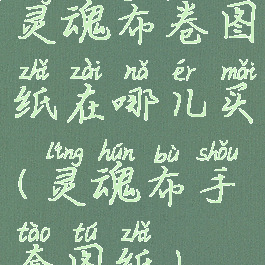 灵魂布卷图
zhǐ zài nǎ ér mǎi
纸在哪儿买
líng hún bù shǒu
(灵魂布手
tào tú zhǐ
套图纸)